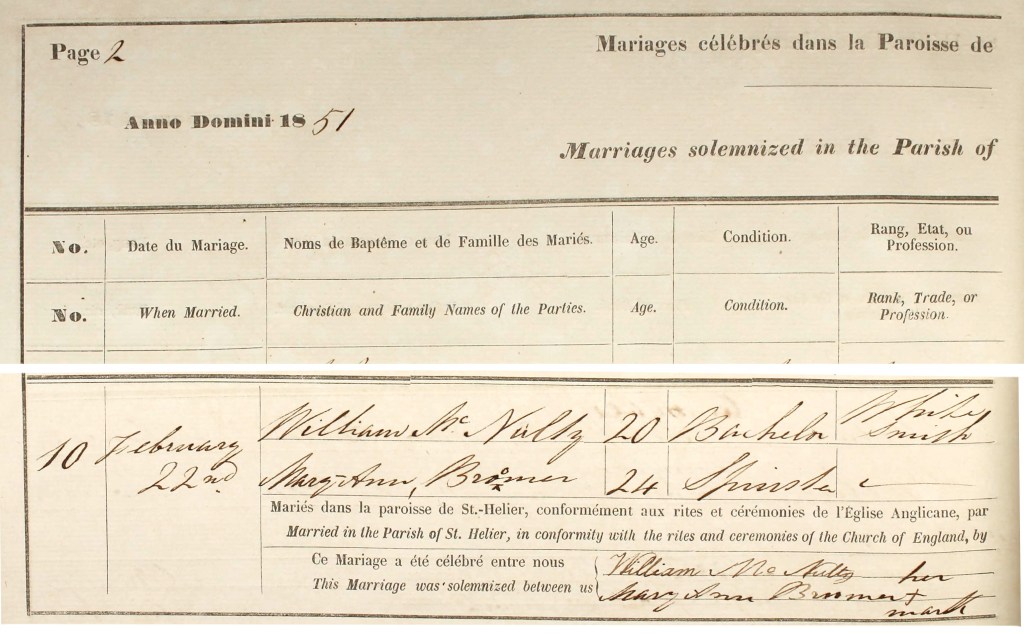 Page 2
Mariages célébrés dans la Paroisse de
Anno Domini 1851
Marriages solemnized in the Parish of
No. Date du Mariage. Noms de Baptême et de Famille des Mariés. Age. Condition. Rang, Etat, ou Profession.
No. When Married. Christian and Family Names of the Parties. Age. Condition. Rank, Trade, or Profession.
10 February 22nd William Mc Nulty 20 Bachelor White Smith
Mary Ann, Bromer 24 Spinster
Mariés dans la paroisse de St.-Helier, conformément aux rites et cérémonies de l'Église Anglicane, par
Married in the Parish of St. Helier, in conformity with the rites and ceremonies of the Church of England, by
Ce Mariage a été célébré entre nous
This Marriage was solemnized between us
William Mc Nulty
Mary Ann Broomer + her mark